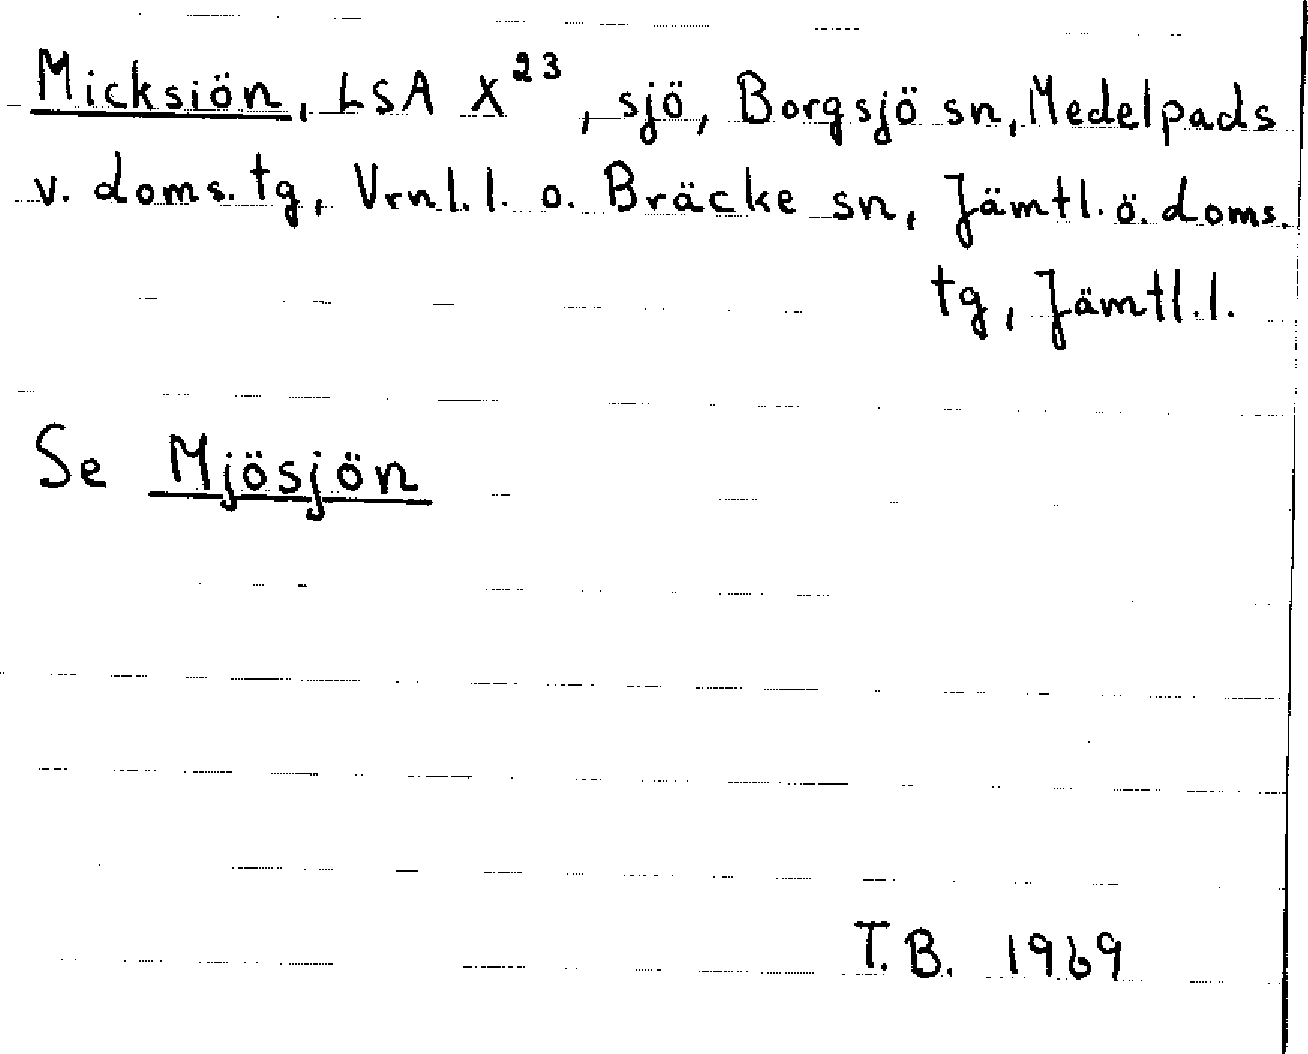 Micksiön, LSA X²³, sjö, Borgsjö sn, Medelpads
v. doms. tg, Vrnl. l. o. Bräcke sn, Jämtl. ö. doms.
tg, Jämtl. l.
Se Mjösjön
T. B. 1969